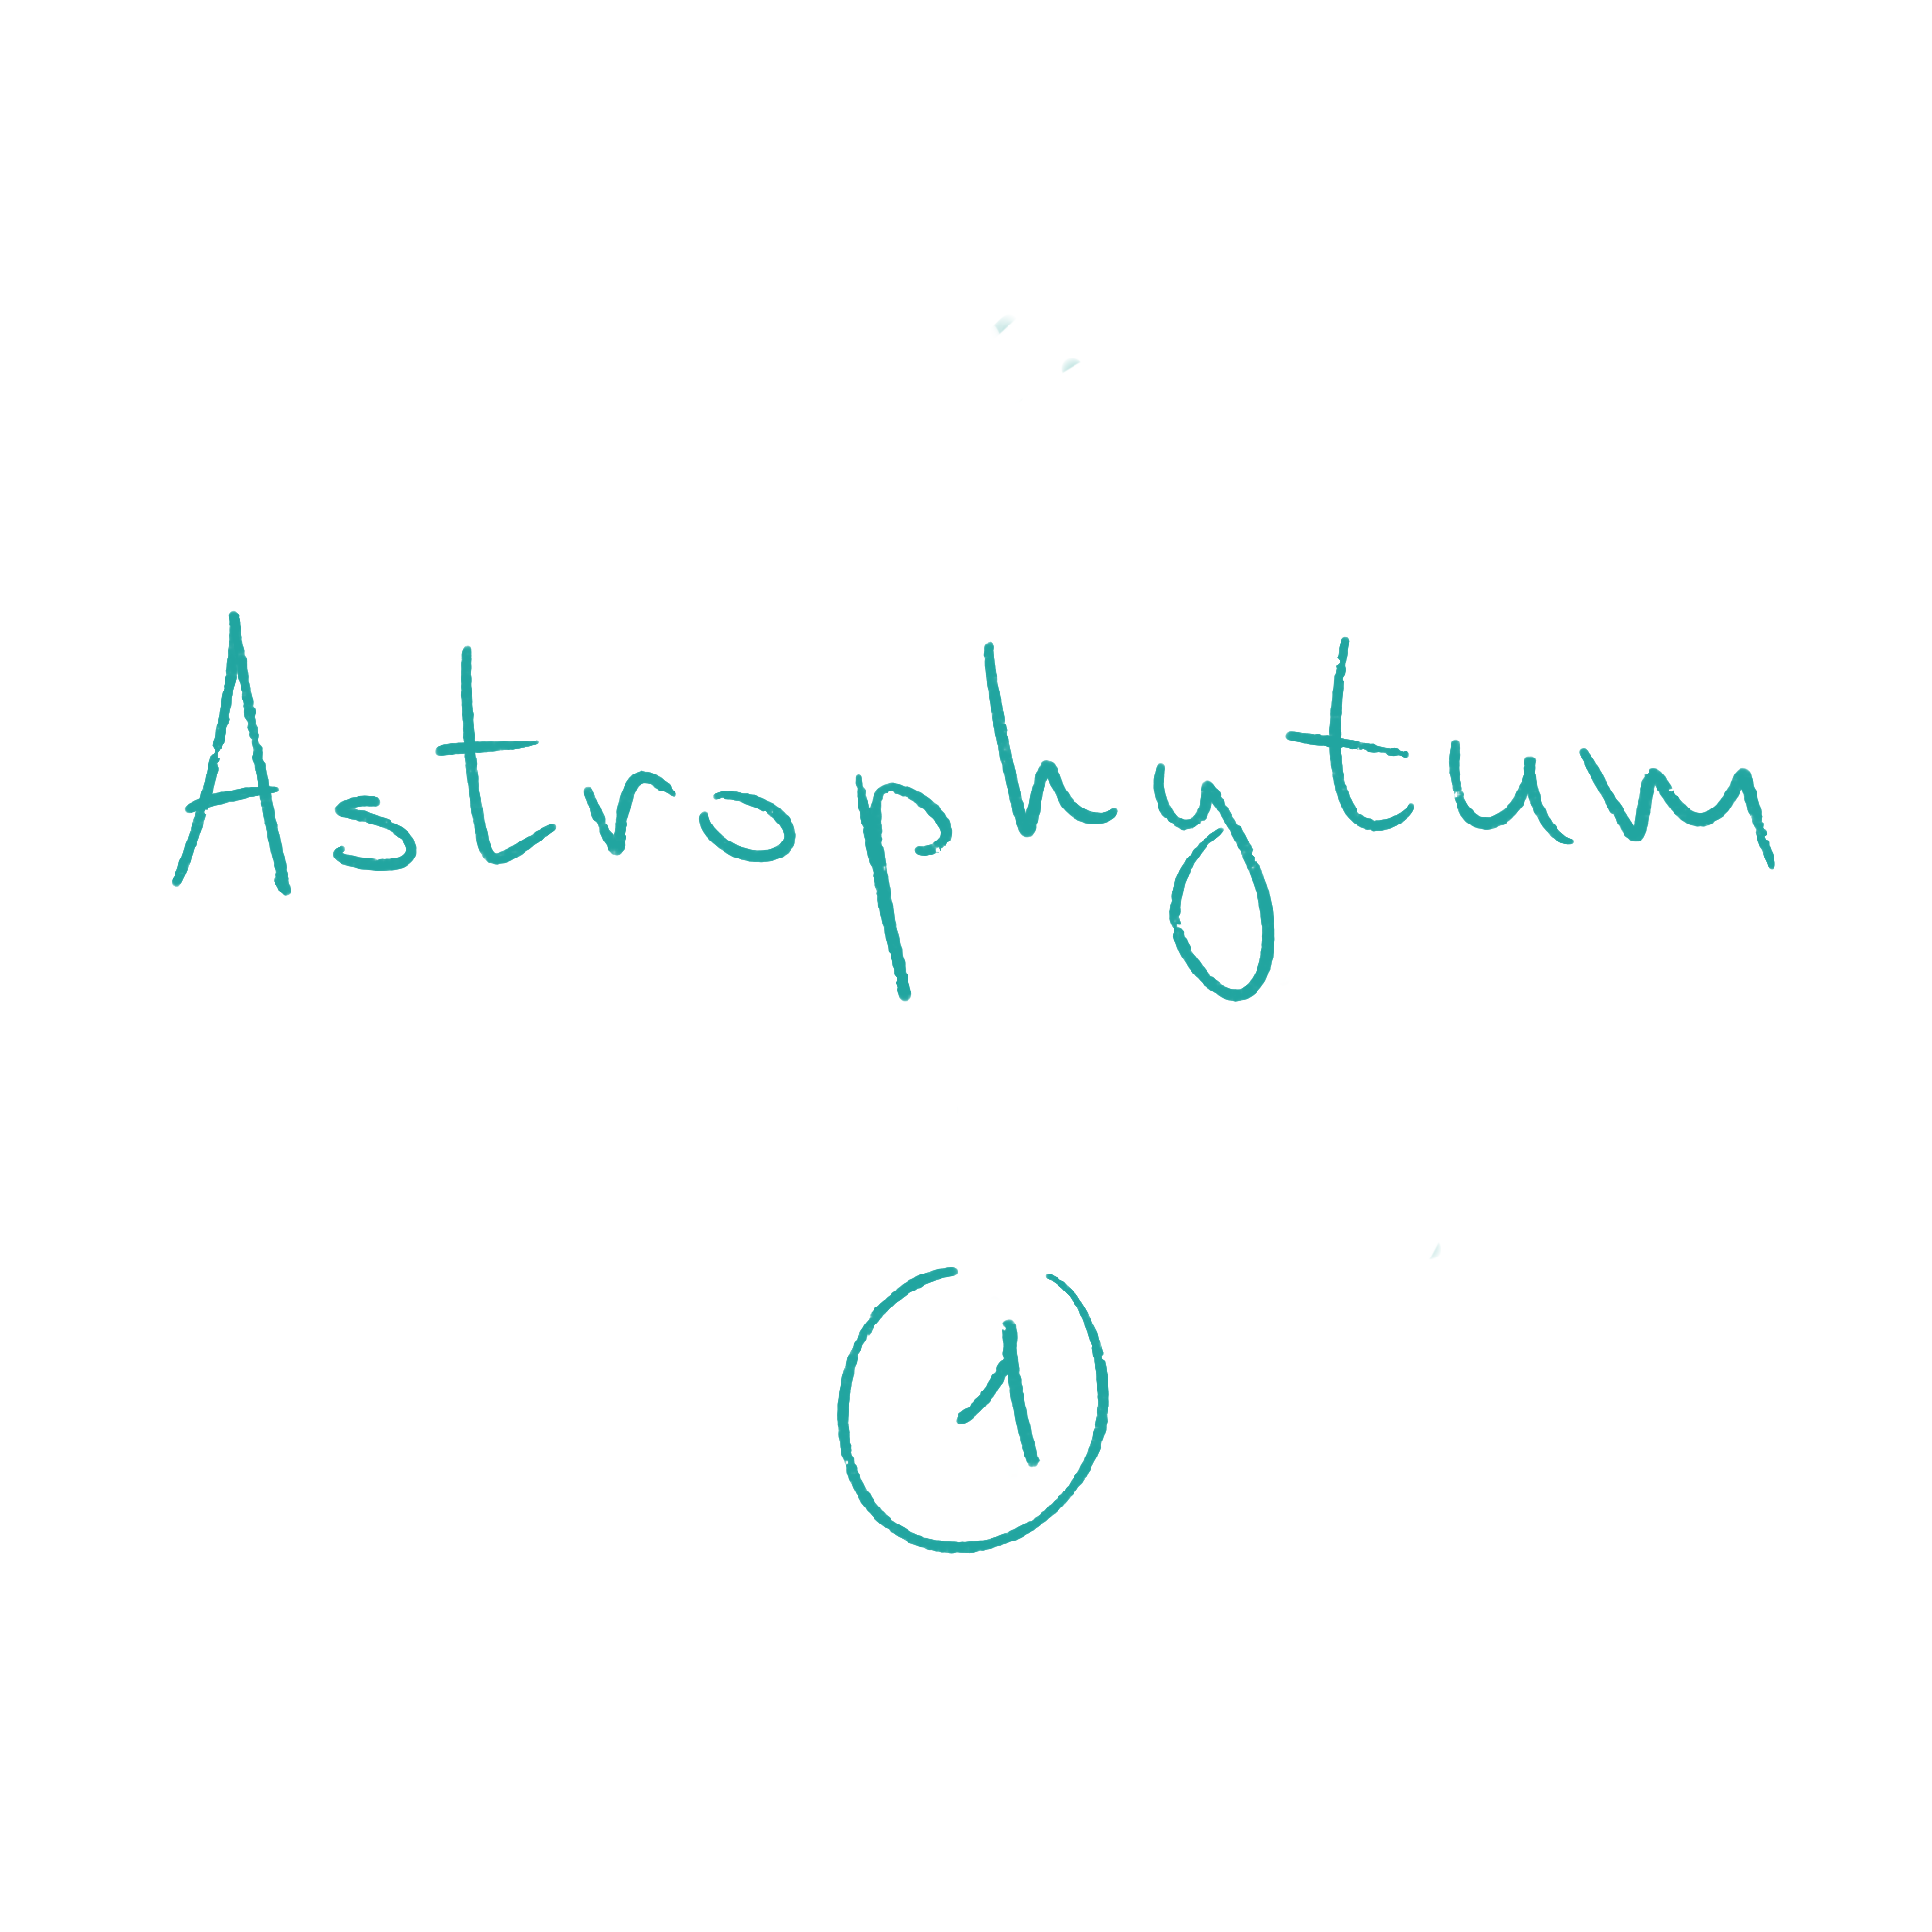 Astrophytum
1